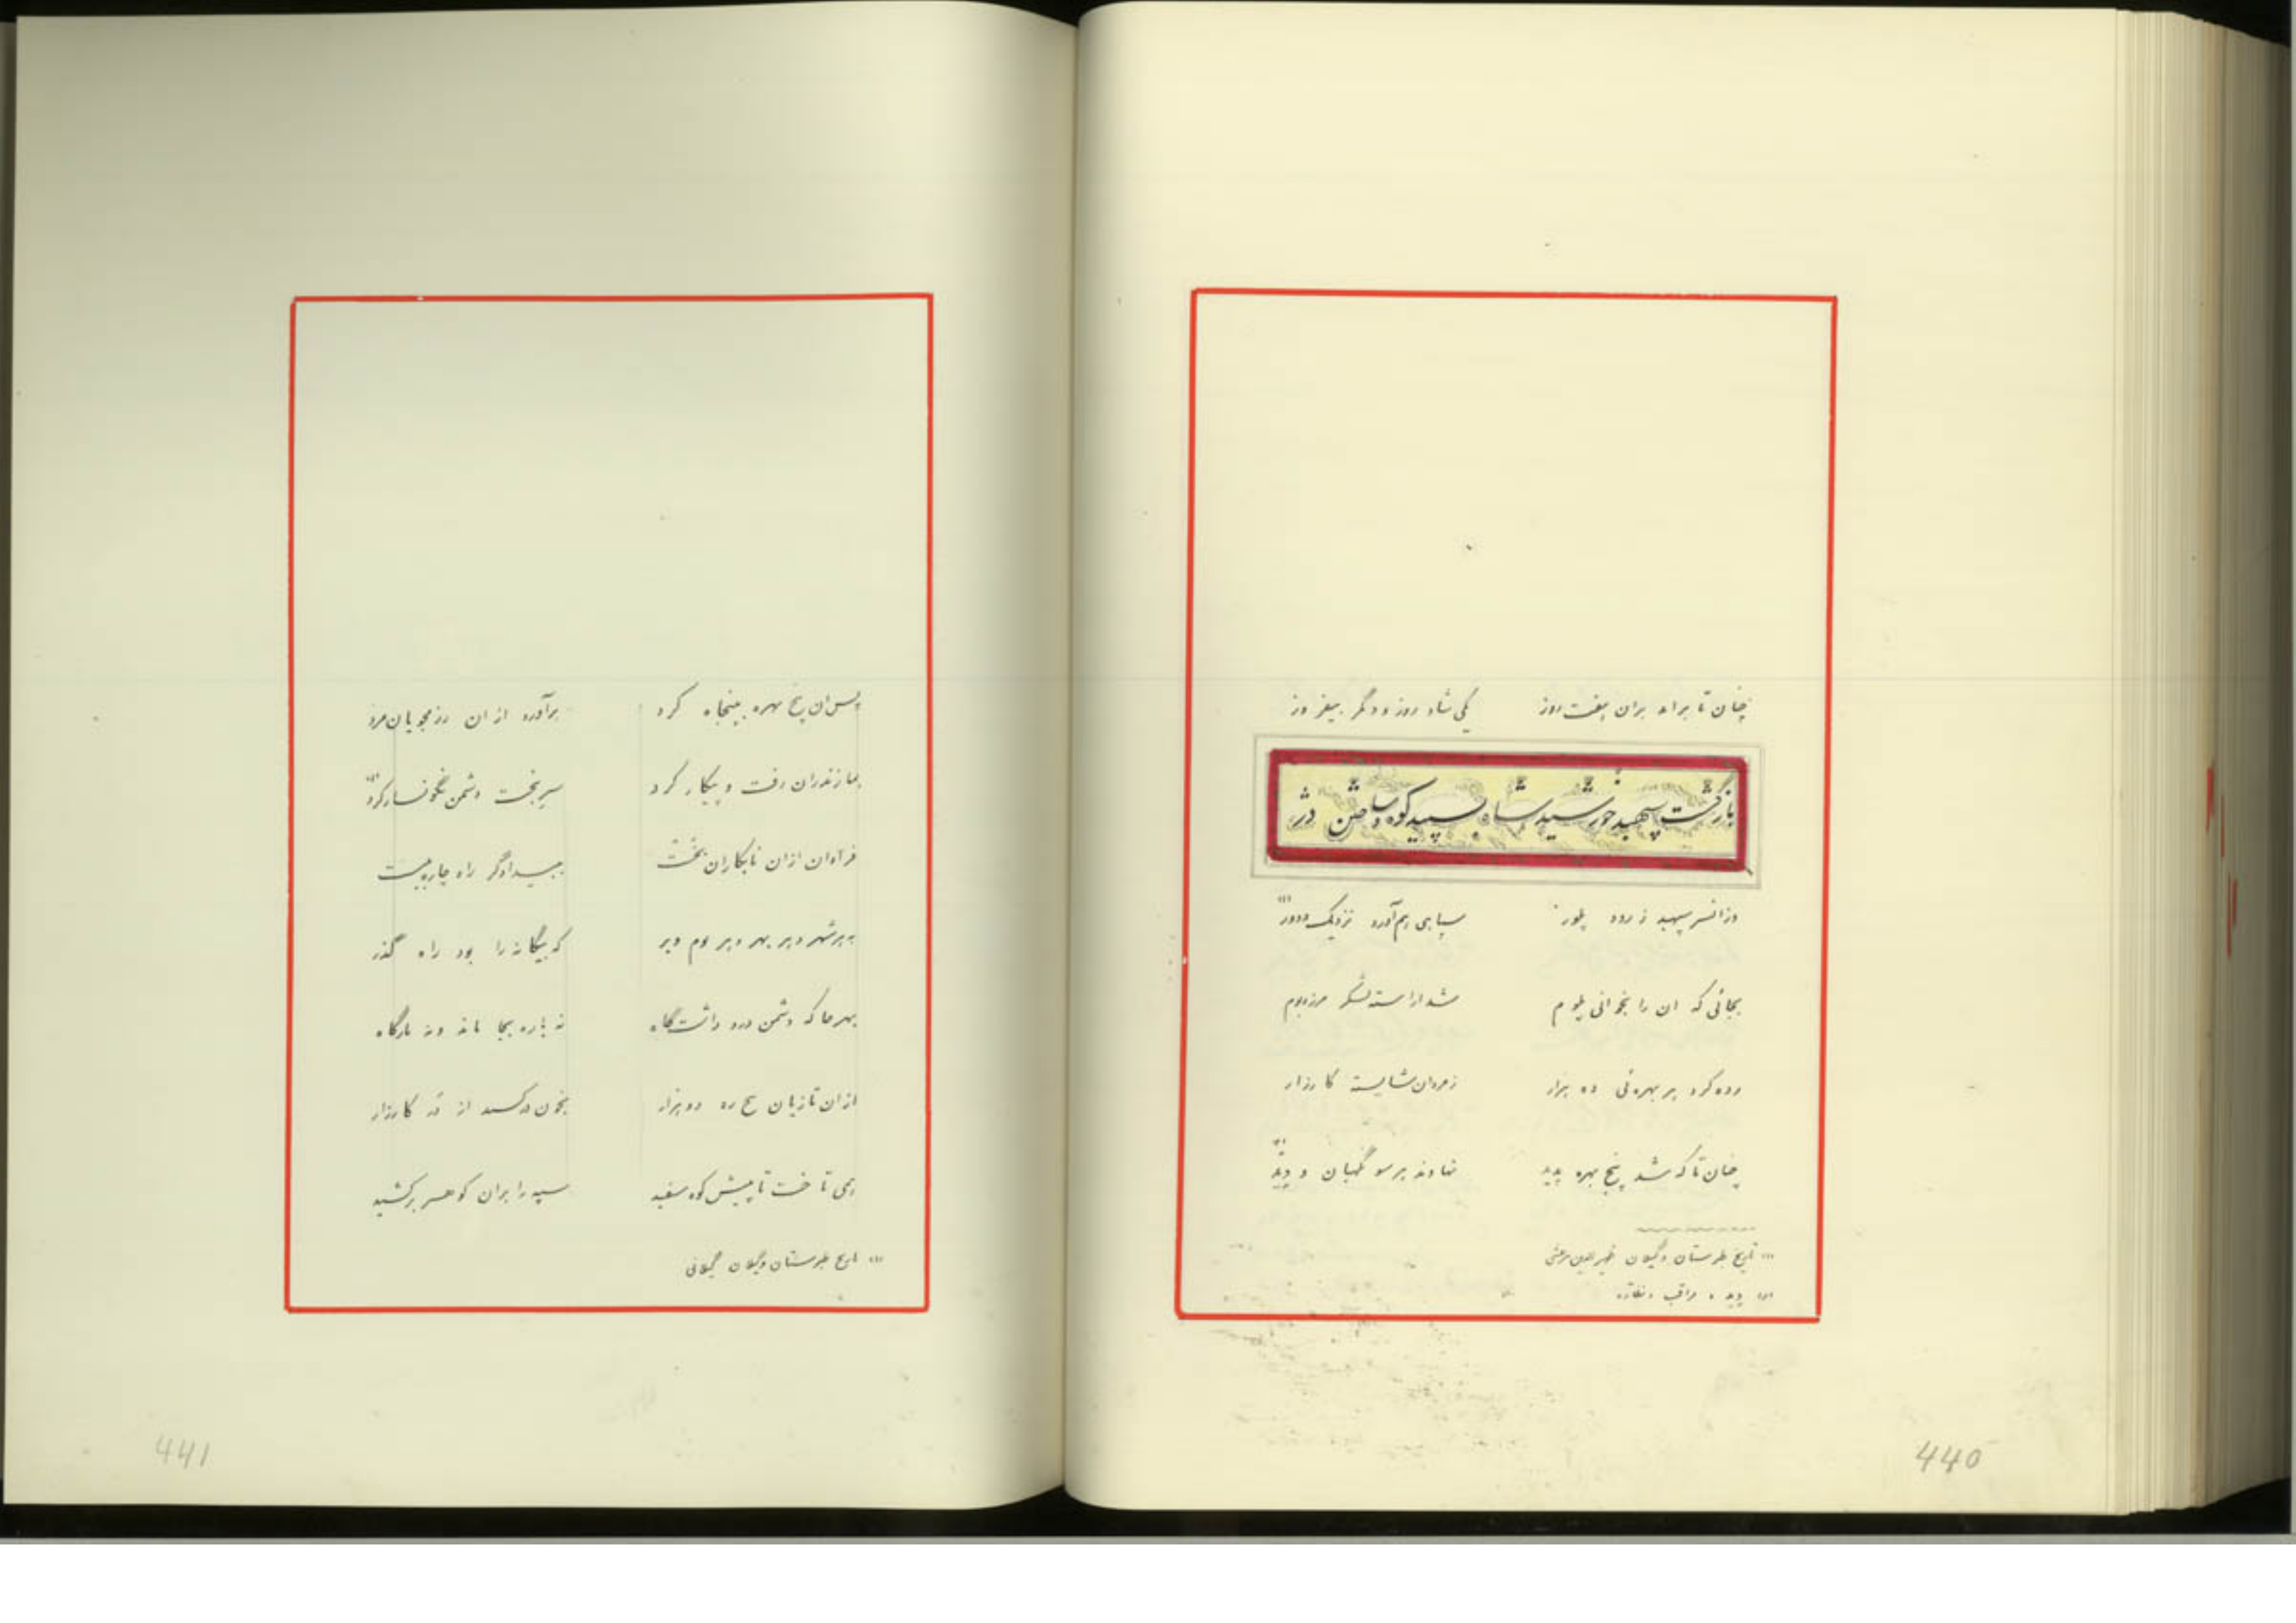 چنان تا براید بران هفت روز یکی شاد روز و دگر نیفروز
بازگشت سپهبد خورشید شاه بسپید کوه و ساختن دژ
وزانسر سپهبد ز رود پلور سپاهی بهم آورد نزدیک و دور (۱)
بجائی که ان را بخوانی پلوم شد اراسته لشکر مرز و بوم
رده کرد بر بهره‌ئی ده هزار ز مردان شایسته کارزار
چنان تا که شد پنج بهره پدید نهادند بر سو نگهبان و دید (۲)
(۱) تاریخ طبرستان و گیلان ظهیرالدین مرعشی
(۲) دید مراقب
440
پس ان پنج بهره به پنجاه کرد برآورد از ان رزمجویان مرد
بمازندران رفت و پیکار کرد سر بخت دشمن نگونسار کرد (۱)
فراوان ازان نابکاران بخست به بیدادگر راه چاره ببست
به هر شهر و هر بهر و هر بوم و بر که بیگانه را بود راه گذر
بهر جا که دشمن درو داشت گاه نه باره بجا ماند و نه بارگاه
ازان تازیان پنج ره دو هزار بخون درکشید از که کارزار
همی تاخت تا پیش کوه سفید سپه را بران کوهسر برکشید
(۱) تاریخ طبرستان و گیلان گیلانی
441